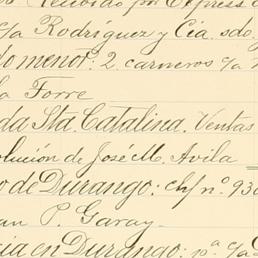 Recibido por Express
c/a Rodríguez y Cía. sdo.
do menor: 2 carneros c/a
la Torre
da Sta. Catalina. Ventas
olución de José M. Avila
o de Durango: ch/ nº. 930
an P. Garay.
cia en Durango: pª. c/a